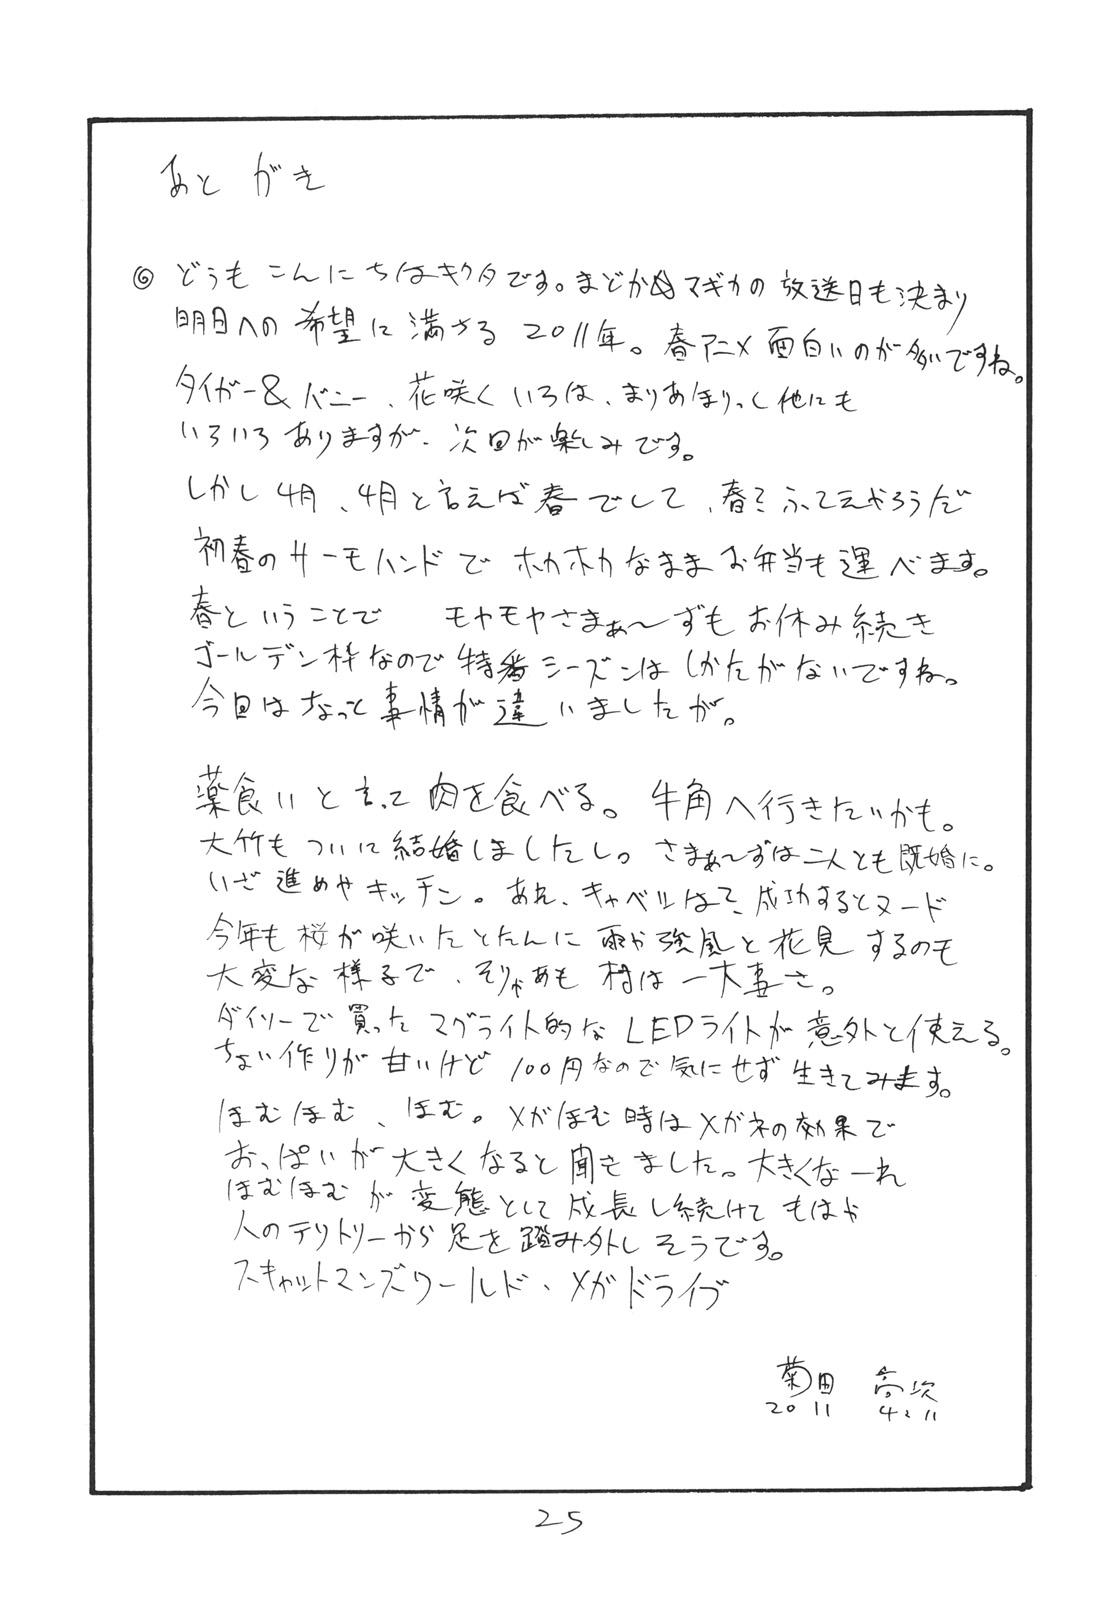 あとがき
◎ どうもこんにちはキクタです。まどか☆マギカの放送日も決まり
明日への希望に満ちる2011年。春アニメ面白いのが多いですね。
タイガー&バニー、花咲くいろは、まりあほりっく他にも
いろいろありますが、次回が楽しみです。
しかし4月、4月と言えば春でして、春
初春のサーモハンドでホカホカなままお弁当も運べます。
春ということで モヤモヤさまぁ〜ずもお休み続き
ゴールデン枠なので特番シーズンはしかたがないですね。
今回はちょっと事情が違いましたが。
薬食いと言って肉を食べる。牛角へ行きたいかも。
大竹もついに結婚しましたし。さまぁ〜ずは二人とも既婚に。
いざ進めやキッチン。あれ、キャベツはて、成功するとヌード
今年も桜が咲いたとたんに雨や強風と花見するのも
大変な様子で、そりゃあも村は一大事さ。
ダイソーで買ったマグライト的なLEDライトが意外と使える。
ちょい作りが甘いけど100円なので気にせず生きてみます。
ほむほむ、ほむ。メガほむ時はメガネの効果で
おっぱいが大きくなると聞きました。大きくなーれ
ほむほむが変態として成長し続けてもはや
人のテリトリーから足を踏み外しそうです。
スキャットマンズワールド、メガドライブ
菊田 高次
2011 4.11
25